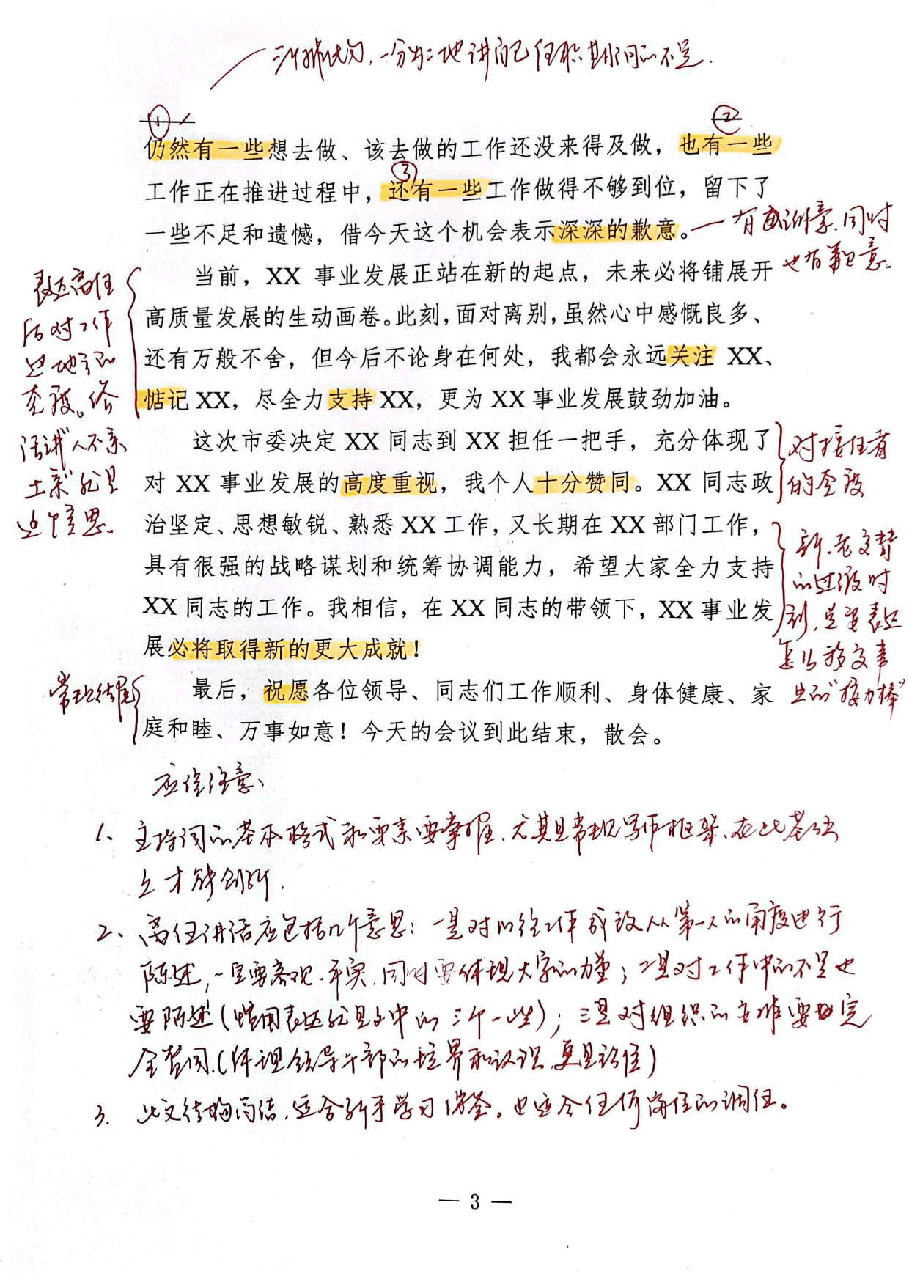 三个排比句,一分为二地讲自己任职期间的不足.
① ②
仍然有一些想去做、该去做的工作还没来得及做,也有一些
③
工作正在推进过程中,还有一些工作做得不够到位,留下了
一些不足和遗憾,借今天这个机会表示深深的歉意。
有感谢意,同时
也有歉意.
当前,XX 事业发展正站在新的起点,未来必将铺展开
高质量发展的生动画卷。此刻,面对离别,虽然心中感慨良多、
还有万般不舍,但今后不论身在何处,我都会永远关注 XX、
惦记 XX,尽全力支持 XX,更为 XX 事业发展鼓劲加油。
表达离任
后对工作
过地方的
态度。俗
话讲"人不亲
土亲"就是
这个意思.
这次市委决定 XX 同志到 XX 担任一把手,充分体现了
对 XX 事业发展的高度重视,我个人十分赞同。XX 同志政
治坚定、思想敏锐、熟悉 XX 工作,又长期在 XX 部门工作,
具有很强的战略谋划和统筹协调能力,希望大家全力支持
XX 同志的工作。我相信,在 XX 同志的带领下,XX 事业发
展必将取得新的更大成就!
对接任者
的态度
新、老交替
的过渡时
刻,总要表达
怎么移交事
业的"接力棒"
最后,祝愿各位领导、同志们工作顺利、身体健康、家
庭和睦、万事如意!今天的会议到此结束,散会。
常规结尾
应值注意:
1、主持词的基本格式和要素要掌握,尤其是常规写作框架,在此基础
上才能创新.
2、离任讲话应包括几个意思:一是对以往工作成效从第一人的角度进行
陈述,一定要客观、平实,同时要体现大家的力量;二是对工作中的不足也
要陈述(惯用表达就是文中的三个一些);三是对组织的安排要完
全赞同.(体现领导干部的境界和认识,更是站位)
3. 此文结构简洁,适合新手学习借鉴,也适合任何岗位的调任。
— 3 —